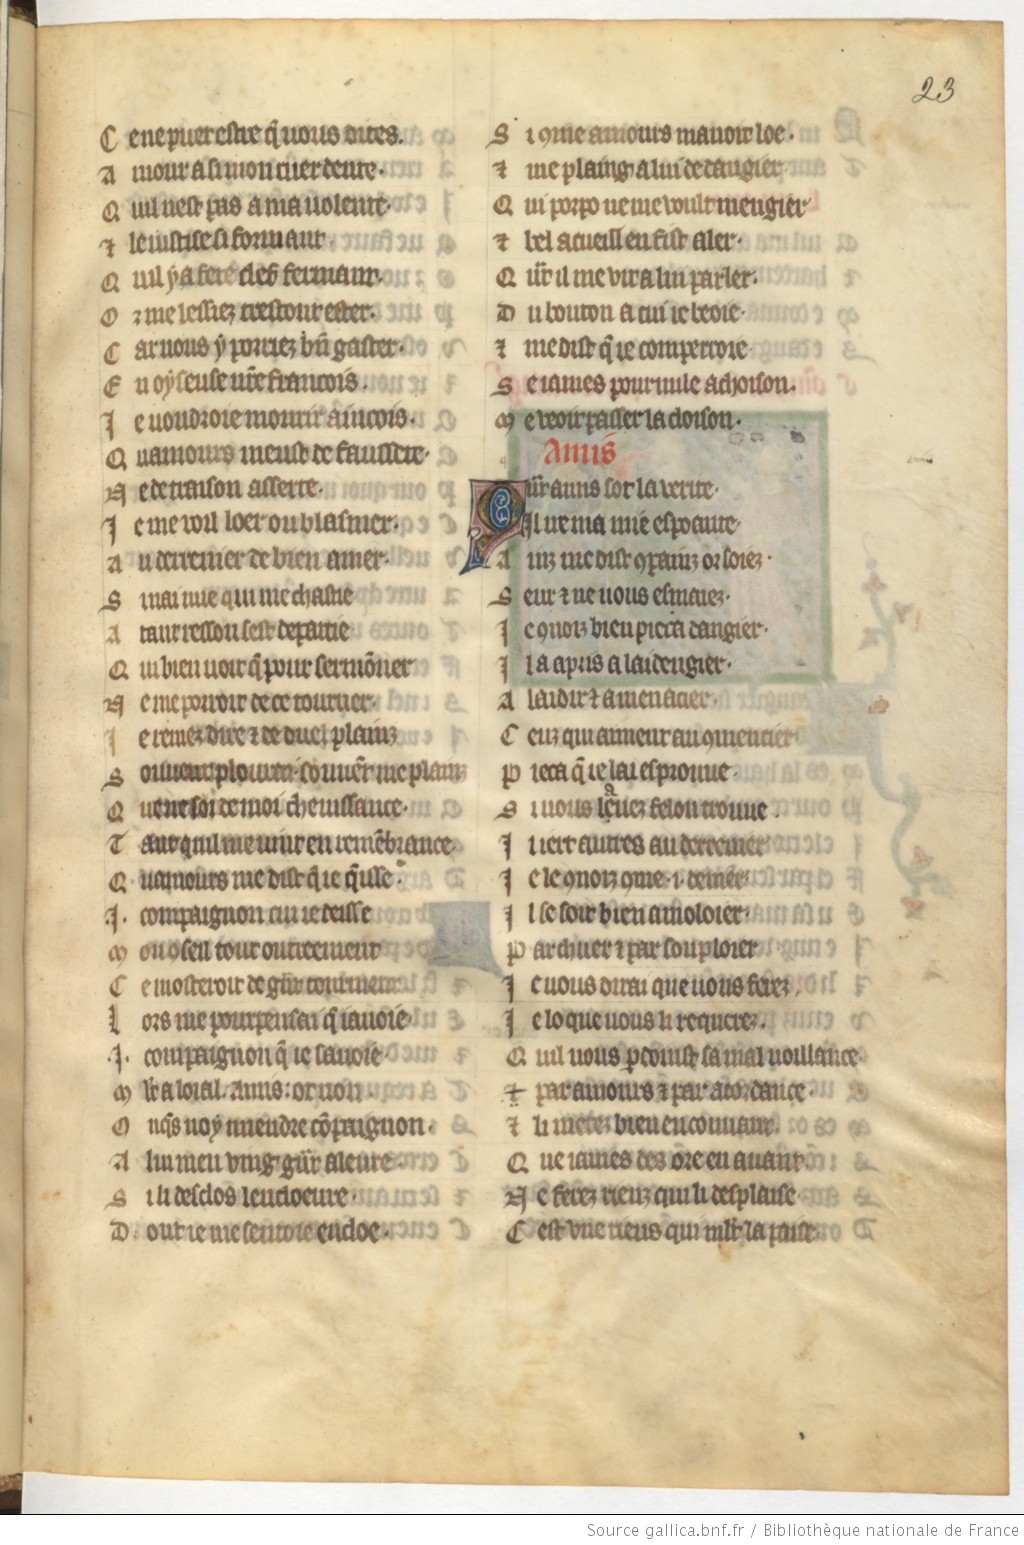 23
C ene puet estre q̃ uous dites.
A mour a si mon cuer dente·
Q uil nest pas a ma uolente·
⁊ le iustise si formant·
Q uil y a fete clef fermant·
O r me lessiez trestout ester·
C ar uous y porriez bñ gaster·
E n oyseuse ur̃e francois·
J e uoudroie mourir aincois·
Q uamours meust de faussete·
N e de traison assete·
J e me voil loer ou blasmer·
A u derrenier de bien amer·
S i mainie qui me chastie
A tant resson sest departie
Q ui bien uoit q̃ pour sermõner
N e me porroit de ce tourner·
J e remez dire ⁊ de duel plainz
S ouuent plourai souuẽt me plainz
Q ue ne soi de moi cheuissance·
T ant quil me uint en remẽbrance·
Q uamours me dist q̃ ie q̃sisse·
·J· compaignon cui ie deisse
M on ꝯseil tout outreement
C e mosteroit de gr̃t tourment
L ors me pourpensai q̃ iauoie·
·J· compaignon q̃ ie sauoie·
M lt̃ a loial. Amis: ot non·
O nq̃s noy miendre cõpaignon·
A lui men ving gr̃t aleure·
S i li desclos lencloeure·
D ont ie me sentoie encloe·
S i ꝯme amours mauoit loe·
⁊ me plaing a lui de dangier
Q ui por po ne me voult mengier
⁊ bel acueill en fist aler·
Q nt̃ il me vit a lui parler·
D u bouton a cui ie beoie·
⁊ me dist q̃ ie comperroie
S e iames pour nule achoison·
M e veoit passer la cloison·
Amis
Qnt̃ amis sot la verite·
Jl ne ma mie espoante·
A inz me dist ꝯpainz or soiez·
S eur ⁊ ne uous esmaiez·
J e ꝯnoiz bien pieca dangier·
J l a apris a laidengier·
A laidir ⁊ a menacier·
C eux qui aiment au ꝯmencier
P ieca q̃ ie lai esproue·
S i uous lauez felon troue·
J l iert autres au derrenier
J e le ꝯnoiz ꝯme ·i· denier
J l se soit bien amoloier·
P ar chuer ⁊ par souploier
J e uous dirai que uous ferez·
J e lo que uous li requerez·
Q uil uous p̱doinst sa mal uoillance·
⁊ par amours ⁊ par acordance·
⁊ li metez bien en couuant·
Q ue iames des ore en auant
N e ferez riens qui li desplaise·
C est vne riens qui mlt̃ la paie
Source gallica.bnf.fr / Bibliothèque nationale de France